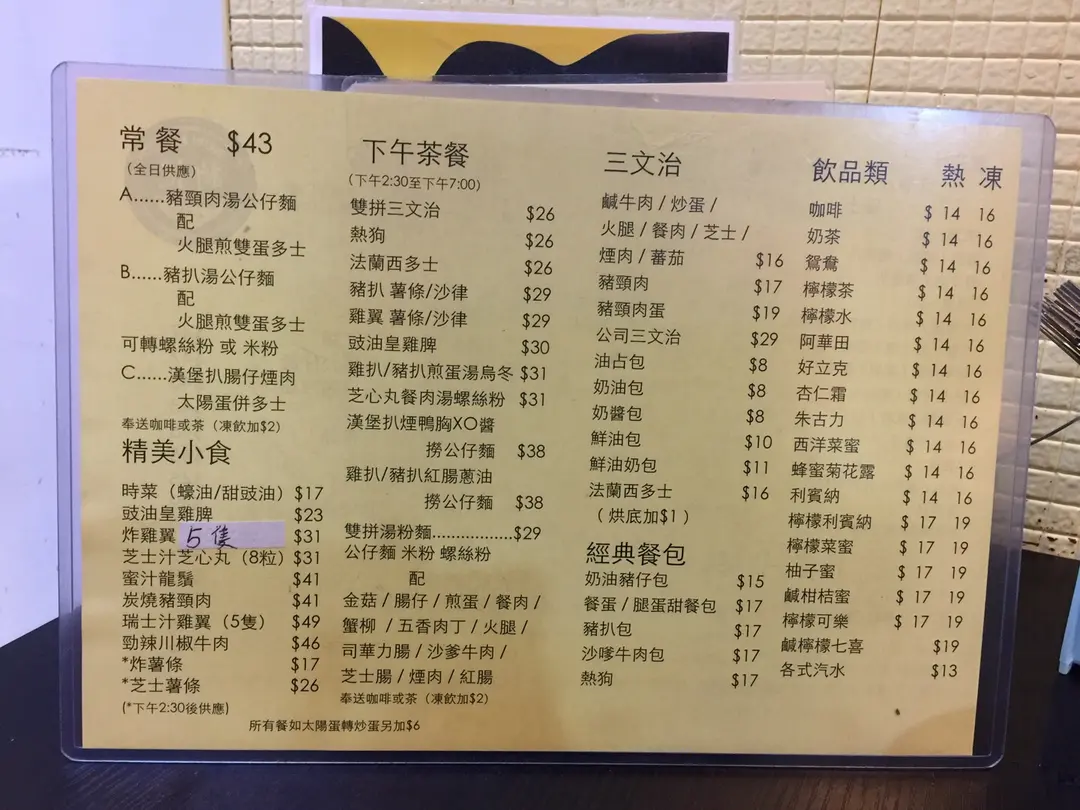 常餐 $43
(全日供應)
A......豬頸肉湯公仔麵
配
火腿煎雙蛋多士
B......豬扒湯公仔麵
配
火腿煎雙蛋多士
可轉螺絲粉 或 米粉
C......漢堡扒腸仔煙肉
太陽蛋併多士
奉送咖啡或茶（凍飲加$2）
精美小食
時菜（蠔油/甜豉油）$17
豉油皇雞髀 $23
炸雞翼 5隻 $31
芝士汁芝心丸（8粒）$31
蜜汁龍鬚 $41
炭燒豬頸肉 $41
瑞士汁雞翼（5隻） $49
勁辣川椒牛肉 $46
*炸薯條 $17
*芝士薯條 $26
(*下午2:30後供應)
下午茶餐
(下午2:30至下午7:00)
雙拼三文治 $26
熱狗 $26
法蘭西多士 $26
豬扒 薯條/沙律 $29
雞翼 薯條/沙律 $29
豉油皇雞髀 $30
雞扒/豬扒煎蛋湯烏冬 $31
芝心丸餐肉湯螺絲粉 $31
漢堡扒煙鴨胸XO醬
撈公仔麵 $38
雞扒/豬扒紅腸蔥油
撈公仔麵 $38
雙拼湯粉麵..................$29
公仔麵 米粉 螺絲粉
配
金菇 / 腸仔 / 煎蛋 / 餐肉 /
蟹柳 / 五香肉丁 / 火腿 /
司華力腸 / 沙爹牛肉 /
芝士腸 / 煙肉 / 紅腸
奉送咖啡或茶（凍飲加$2）
所有餐如太陽蛋轉炒蛋另加$6
三文治
鹹牛肉 / 炒蛋 /
火腿 / 餐肉 / 芝士 /
煙肉 / 蕃茄 $16
豬頸肉 $17
豬頸肉蛋 $19
公司三文治 $29
油占包 $8
奶油包 $8
奶醬包 $8
鮮油包 $10
鮮油奶包 $11
法蘭西多士 $16
( 烘底加$1 )
經典餐包
奶油豬仔包 $15
餐蛋 / 腿蛋甜餐包 $17
豬扒包 $17
沙嗲牛肉包 $17
熱狗 $17
飲品類 熱 凍
咖啡 $ 14 16
奶茶 $ 14 16
鴛鴦 $ 14 16
檸檬茶 $ 14 16
檸檬水 $ 14 16
阿華田 $ 14 16
好立克 $ 14 16
杏仁霜 $ 14 16
朱古力 $ 14 16
西洋菜蜜 $ 14 16
蜂蜜菊花露 $ 14 16
利賓納 $ 14 16
檸檬利賓納 $ 17 19
檸檬菜蜜 $ 17 19
柚子蜜 $ 17 19
鹹柑桔蜜 $ 17 19
檸檬可樂 $ 17 19
鹹檸檬七喜 $19
各式汽水 $13